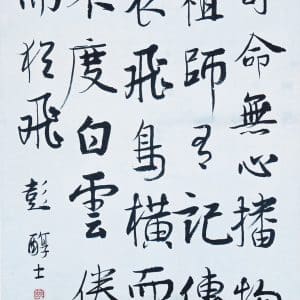 司命無心播物
祖師有記傳
衣飛鳥橫而
不度白雲倦
而猶飛
彭醇士